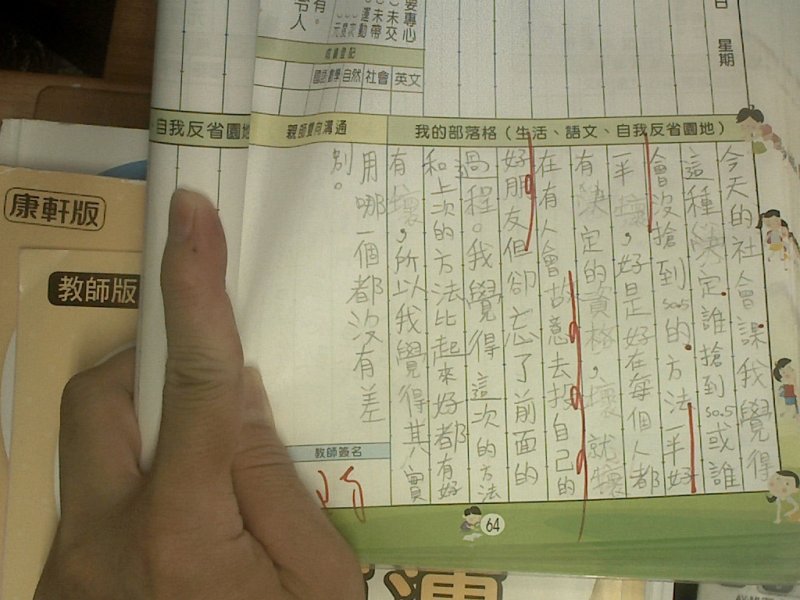 日
星期
要專心
未交
未帶
運動
有。
令人
成績登記
國語
數學
自然
社會
英文
我的部落格（生活、語文、自我反省園地）
親師雙向溝通
自我反省園地
今天的社會課我覺得
這種決定誰搶到so.5或誰
會沒搶到so.5的方法一半好
一半壞，好是好在每個人都
有決定的資格，壞就壞
在有人會故意去投自己的
好朋友但卻忘了前面的
過程。我覺得這次的方法
和上次的方法比起來好都有好
有壞，所以我覺得其實
用哪一個都沒有差
別。
教師簽名
64
康軒版
教師版